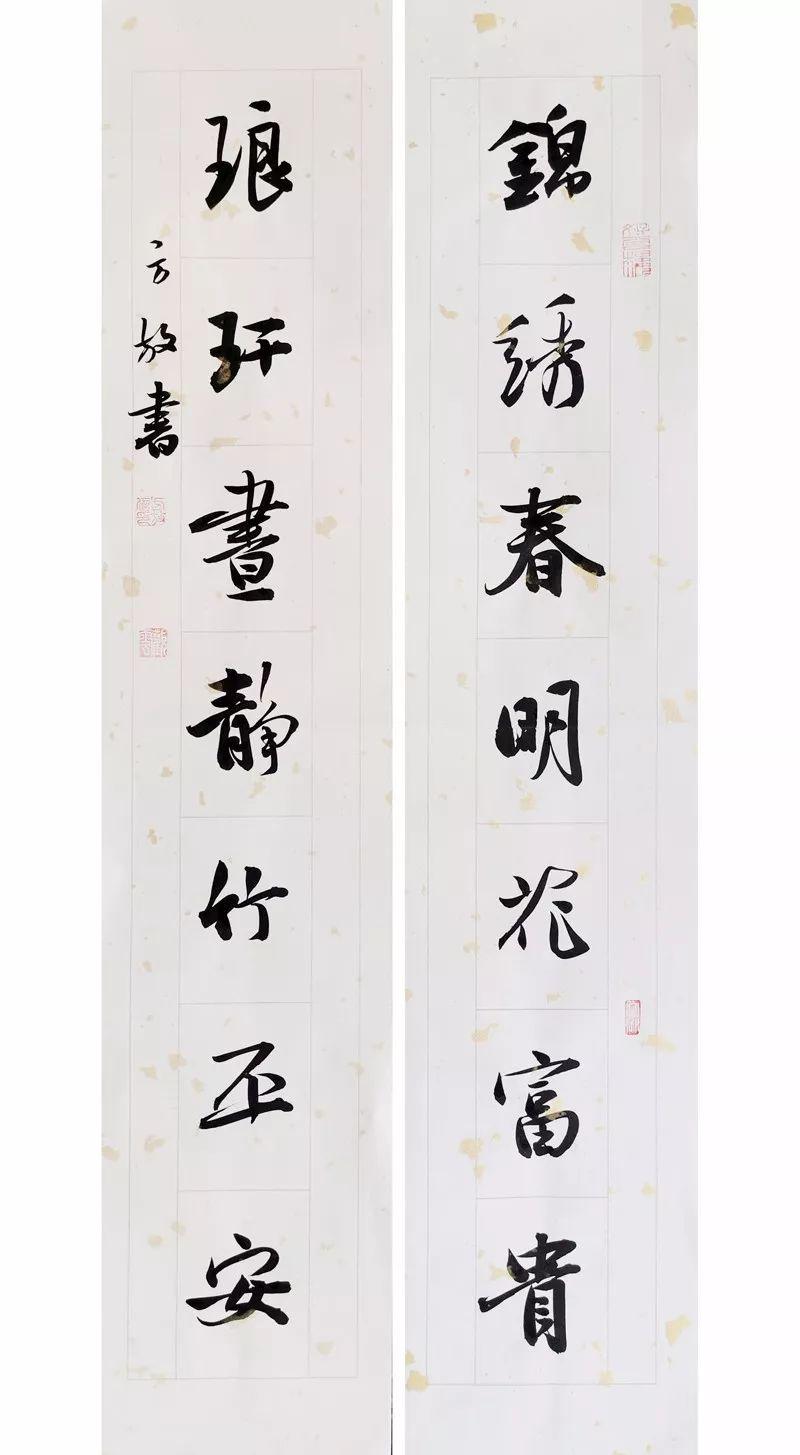 錦綉春明花富貴
琅玕晝静竹平安
方放書